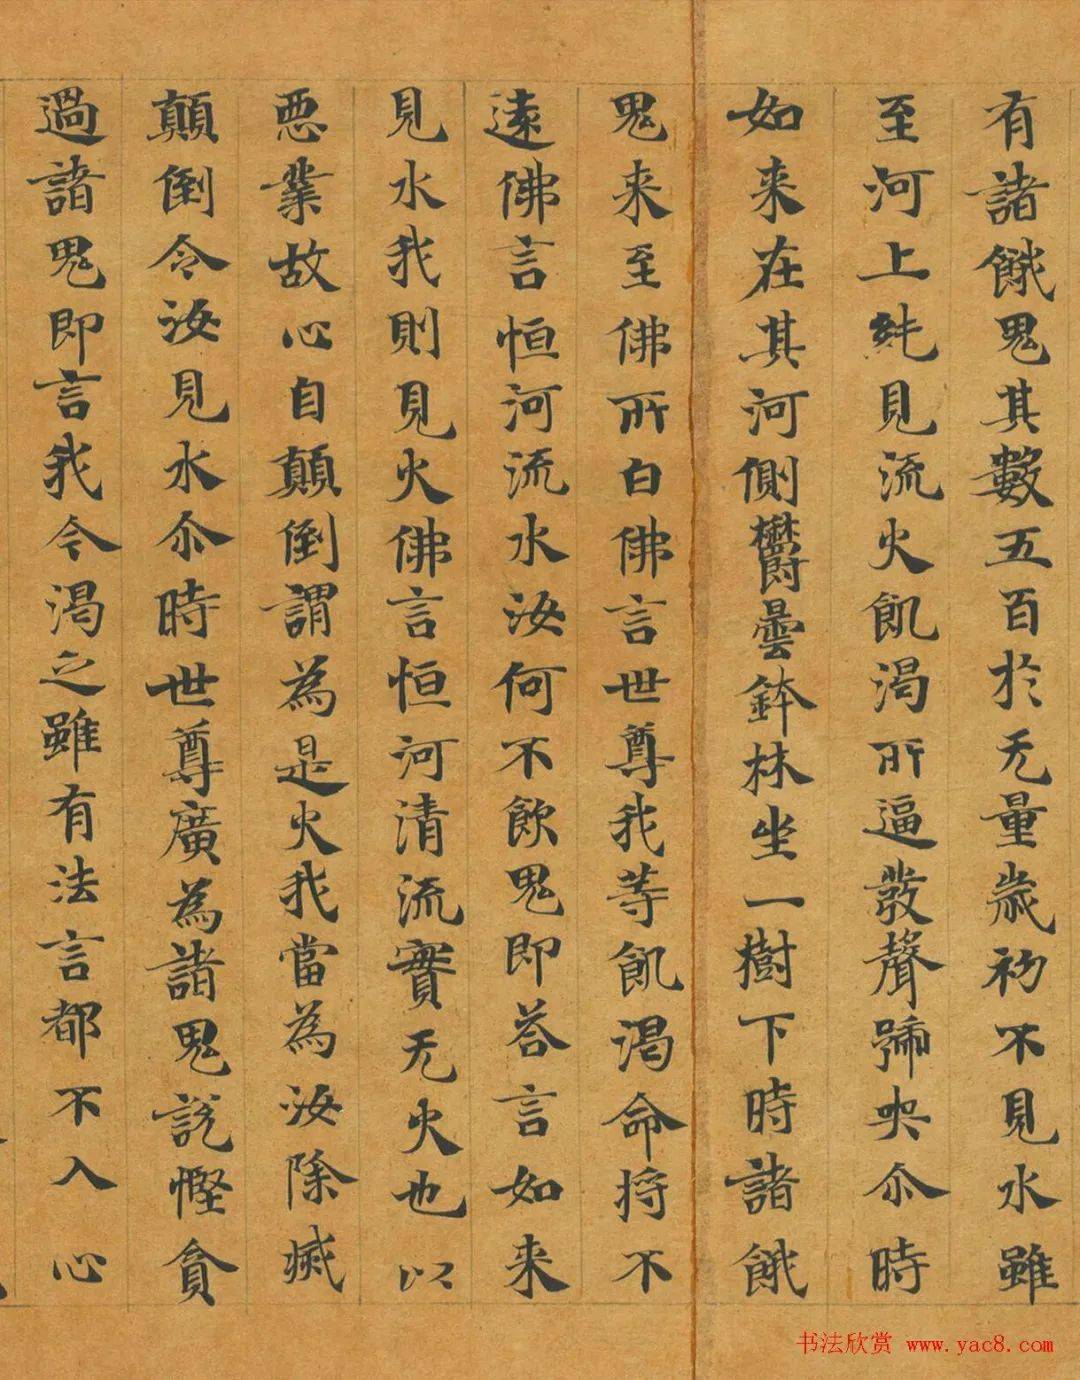 有諸餓鬼其數五百於无量歲初不見水雖
至河上純見流火飢渴所逼發聲號哭尒時
如来在其河側欝曇鉢林坐一樹下時諸餓
鬼来至佛所白佛言世尊我等飢渴命将不
遠佛言恒河流水汝何不飲鬼即荅言如来
見水我則見火佛言恒河清流實无火也以
惡業故心自顛倒謂為是火我當為汝除滅
顛倒令汝見水尒時世尊廣為諸鬼說慳貪
過諸鬼即言我今渴乏雖有法言都不入心
书法欣赏 www.yac8.com